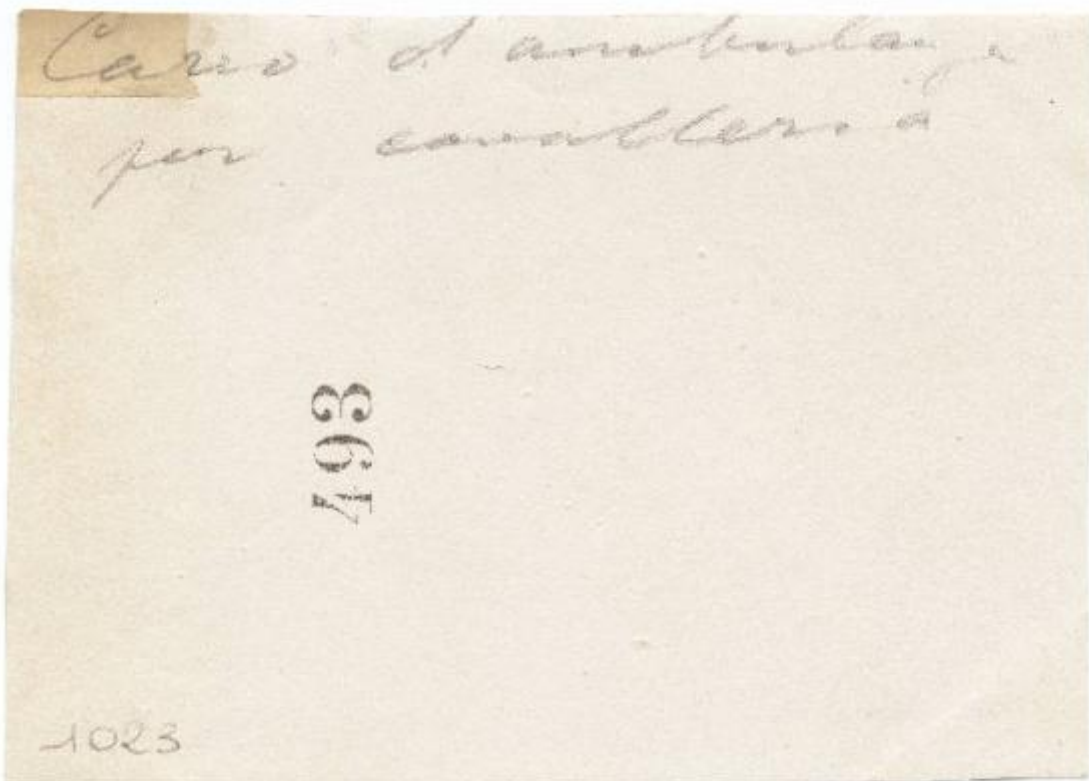 Carro d'ambulanza
per cavalleria
493
1023